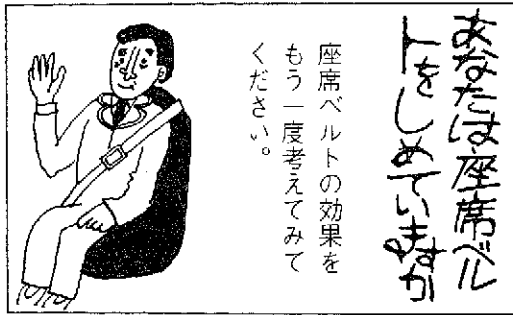 あなたは座席ベル
トをしめていますか
座席ベルトの効果を
もう一度考えてみて
ください。